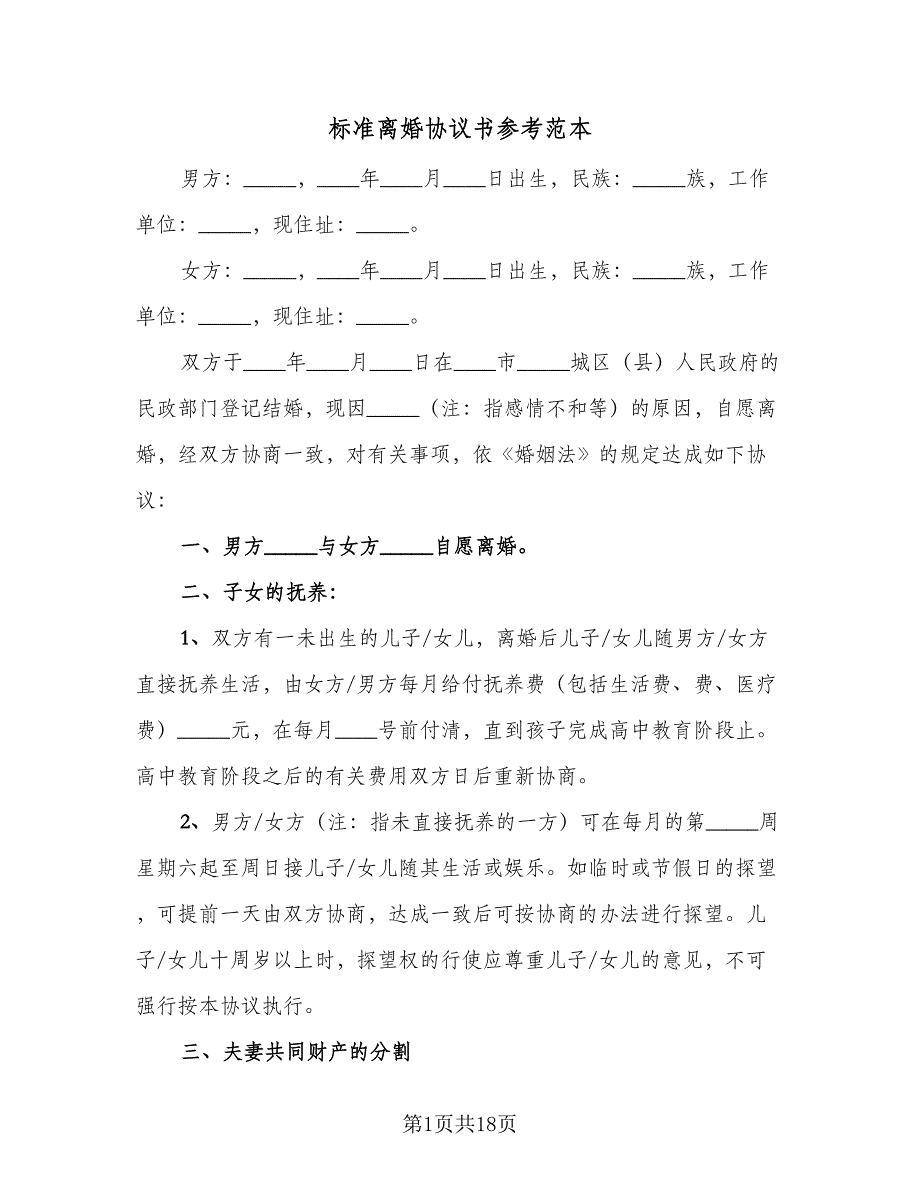 标准离婚协议书参考范本
男方：_____，____年____月____日出生，民族：_____族，工作
单位：_____，现住址：_____。
女方：_____，____年____月____日出生，民族：_____族，工作
单位：_____，现住址：_____。
双方于____年____月____日在____市_____城区（县）人民政府的
民政部门登记结婚，现因_____（注：指感情不和等）的原因，自愿离
婚，经双方协商一致，对有关事项，依《婚姻法》的规定达成如下协
议：
一、男方_____与女方_____自愿离婚。
二、子女的抚养：
1、双方有一未出生的儿子/女儿，离婚后儿子/女儿随男方/女方
直接抚养生活，由女方/男方每月给付抚养费（包括生活费、费、医疗
费）_____元，在每月____号前付清，直到孩子完成高中教育阶段止。
高中教育阶段之后的有关费用双方日后重新协商。
2、男方/女方（注：指未直接抚养的一方）可在每月的第_____周
星期六起至周日接儿子/女儿随其生活或娱乐。如临时或节假日的探望
，可提前一天由双方协商，达成一致后可按协商的办法进行探望。儿
子/女儿十周岁以上时，探望权的行使应尊重儿子/女儿的意见，不可
强行按本协议执行。
三、夫妻共同财产的分割
第1页共18页